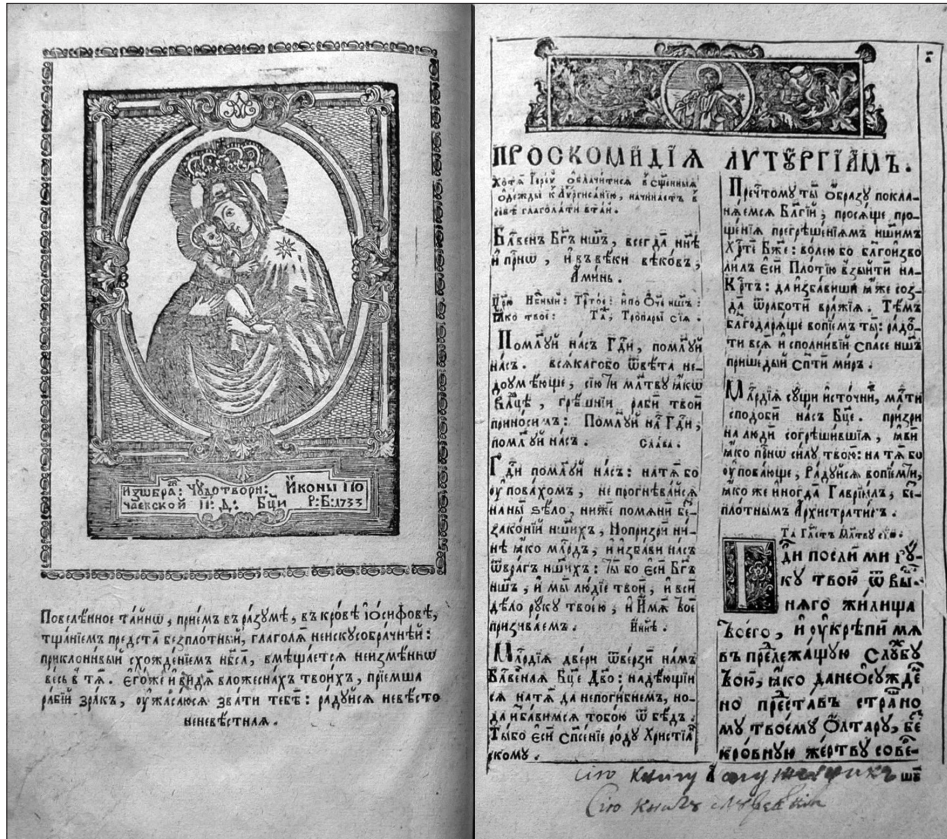 Изѡбра: Чꙋдотворн: Иконы По
чаевской П: Д: Бцы Р:Б:1733
Повелѣнное тайнѡ, прїем въ разꙋмѣ, въ кровѣ Іѡсифовѣ,
тщанїемъ предста безплотный, глаголѧ неискꙋсобрачнѣй:
приклонивый схожденїемъ нбса, вмѣщается неизмѣннѡ
весь в тѧ. Егоже и видѧ в ложеснахъ твоихъ, прїемша
рабїй зракъ, ꙋжасаюсѧ звати тебѣ: радꙋйсѧ невѣсто
неневѣстнаѧ.
ПРОСКОМИДІѦ ЛѴТꙊРГІАМЪ.
Хотѧ Іерей ѡблачитисѧ в сщенныѧ
одежды к Лѵтргисанїю, начинаетъ в
себѣ глаголати втай.
Блвенъ Бгъ ншъ, всегда ннѣ
и прнѡ, и въ вѣки вѣковъ,
Аминь.
Црю Нбный: Трстое: и по Оче ншъ:
Ꙗко твое: Та, Тропары сїѧ.
Помлꙋй насъ Гди, помлꙋй
насъ. всѧкагобо ѿвѣта не-
доꙋмѣюще, сїю ти млтвꙋ ꙗкѡ
Влцѣ, грѣшнїи раби твои
приносимъ: Помлꙋй на Гди,
помлꙋй насъ. Слава.
Гди помлꙋй насъ: на тѧ бо
ꙋповахомъ, не прогнѣвайсѧ
на ны ѕѣло, ниже помѧни бе-
законїй ншихъ, Но призри ни-
нѣ ꙗко млрдъ, и избави насъ
ѿ врагъ ншихъ: Ты бо еси Бгъ
ншъ, и мы людїе твои, и вси
дѣло рꙋкꙋ твоею, и Имѧ твое
призываемъ. Ннѣ.
Млрдїѧ двери ѿверзи намъ
Блвеннаѧ Бце Дво: надѣющїи
сѧ на тѧ да непогибнемъ, но-
да избавимсѧ тобою ѿ бѣдъ.
Ты бо еси Спсенїе родꙋ Христїа
скомꙋ.
Пречтомꙋ ти Образꙋ покла-
нѧемсѧ Блгїй, просѧще про-
щенїѧ прегрѣшенїѧмъ ншимъ
Хрте Бже: волею бо блгоизво
лилъ еси Плотїю взыйти на-
Кртъ: да избавиши ꙗже соз-
да ѿ работи вражїѧ. Тѣмъ
благодарѧще вопїемъ ти: радо-
ти всѧ исполнивїй Спасе ншъ
пришедый спсти миръ.
Млрдїѧ сꙋщи источни, млти
сподоби насъ Бце. призри
на люди согрѣшившїѧ, ꙗви
ꙗко прнѡ силꙋ твою: на тѧ бо
ꙋповающе, Радꙋйсѧ вопїемти,
ꙗко же иногда Гаврїилъ, бе-
плотнымъ Архистратигъ.
Та Глетъ Млтвꙋ сїю.
Гди посли ми рꙋ-
кꙋ твою ѿ вы-
нѧго жилища
твоего, и ꙋкрѣпи мѧ
въ прележащꙋю Слꙋжбꙋ
твою, ꙗко да неосꙋжде
но преставъ страно
мꙋ твоемꙋ Олтару, бе
кровнꙋю жертвꙋ сове-
сїю книгꙋ
Сїю книгꙋ